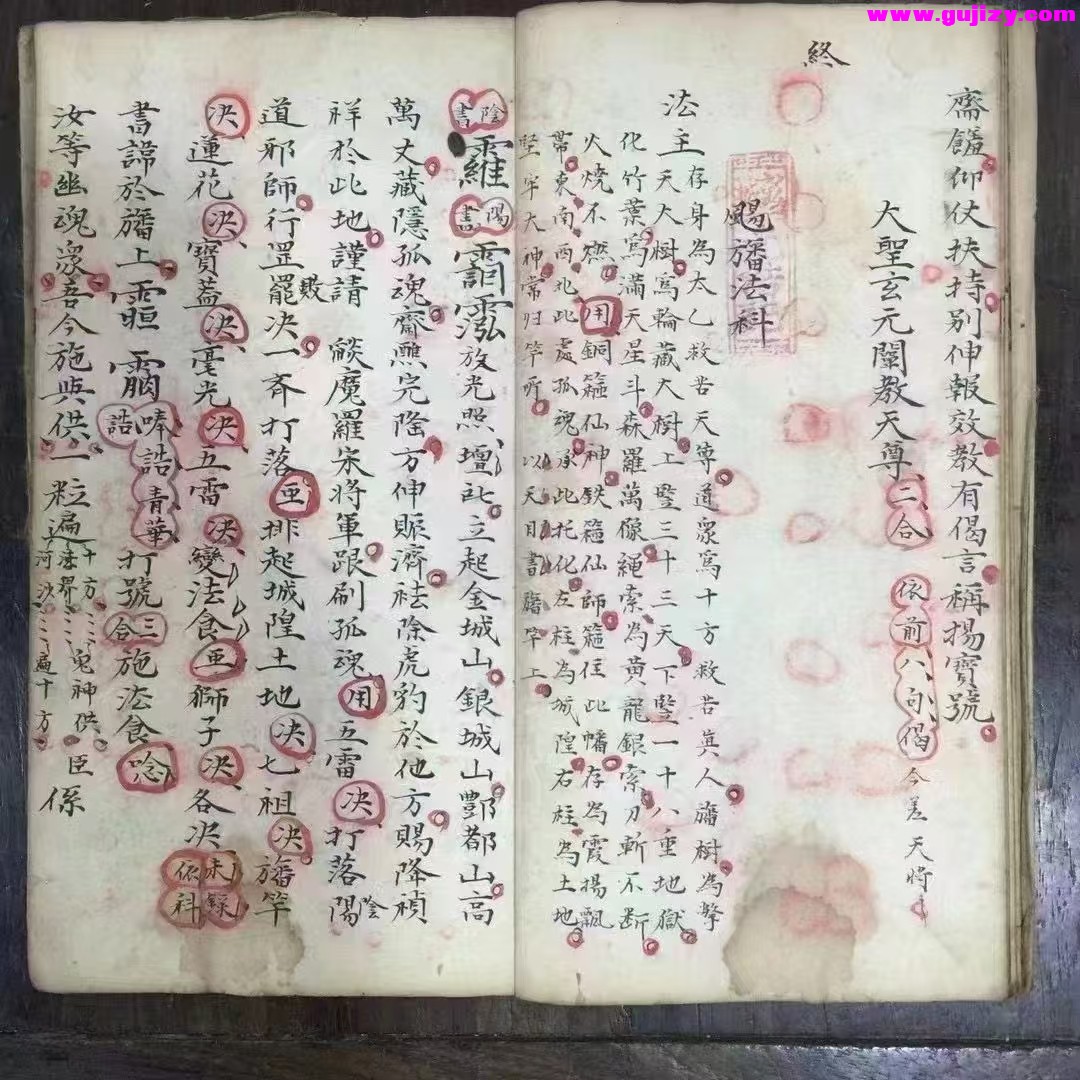 www.gujizy.com
終
齋饈仰仗扶持别伸報效教有偈言稱揚寶號
大聖玄元闡教天尊 二合 依前八句偈 今差天將
賜旛法科
法主存身為太乙救苦天尊道眾為十方救苦真人旛樹為擎
天大樹為輪藏大樹上豎三十三天下豎一十八重地獄
化竹葉為滿天星斗森羅萬像繩索為黃龍銀索刀斬不断
火燒不燃用銅箍仙神鉄箍仙師箍住此幡存為霞揚飄
帶東南西北此處孤魂承此托化左柱為城隍右柱為土地
堅牢大神常归竿所以天目書旛竿上
陰書 陽書 放光照壇 立起金城山銀城山酆都山高
萬丈藏隱孤魂齋醮完隆方伸賑濟袪除虎豹於他方賜降禎
祥於此地謹請 燄魔羅宋將軍跟刷孤魂用五雷决打落陽陰
道邪師行罡罷决一齐打落 排起城隍土地决七祖决旛竿
决蓮花决寶蓋决毫光决五雷决變法食 獅子决各决未錄依科
書諱於旛上 誥青華誥打號三合施法食唸
汝等幽魂眾吾今施與供一粒遍十方 河沙 鬼神供臣係
遍十方